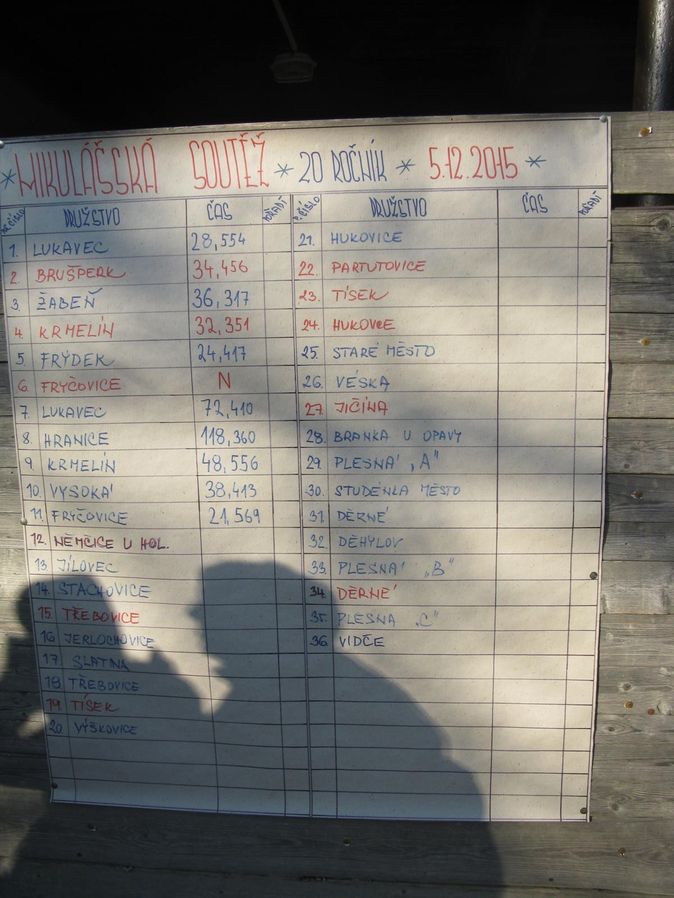 * MIKULÁŠSKÁ SOUTĚŽ * 20 ROČNÍK * 5.12.2015 *
DRUŽSTVO ČAS POŘADÍ
1. LUKAVEC 28,554
2 BRUŠPERK 34,456
3. ŽABEŇ 36,317
4. KRMELÍN 32,351
5. FRÝDEK 24,417
6. FRYČOVICE N
7. LUKAVEC 72,410
8. HRANICE 118,360
9. KRMELÍN 48,556
10. VYSOKÁ 38,413
11. FRYČOVICE 21,569
12. NĚMČICE U HOL.
13 JÍLOVEC
14. STACHOVICE
15. TŘEBOVICE
16 JERLOCHOVICE
17 SLATINA
18 TŘEBOVICE
19 TÍSEK
20. VÝŠKOVICE
P. ČÍSLO DRUŽSTVO ČAS POŘADÍ
21. HUKOVICE
22. PARTUTOVICE
23. TÍSEK
24. HUKOVCE
25. STARÉ MĚSTO
26. VÉSKA
27. JIČINA
28. BRANKA U OPAVY
29. PLESNÁ „A"
30. STUDÉNKA MĚSTO
31. DĚRNÉ
32. DĚHYLOV
33. PLESNÁ „B"
34. DĚRNÉ
35. PLESNÁ „C"
36. VIDČE